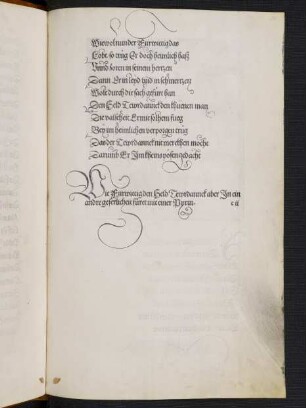 Wiewol nun der Furwittig das
Lobt so trug Er doch heimlich hass
Vnnd zoren in seinem hertzen
Dann Er in leyd vnd in schmertzen
Wolt durch die sach gefurt han
Den Held Tewrdannck den thewren man
Die valscheit Er mit solhem fueg
Bey im heimlichen verporgen trug
Das der Tewrdannck nit mercken mocht
Darumb Er Im kheins posen gedacht
Wie Furwittig den Held Tewrdannck aber In ein
andre geferlicheit furet mit einer